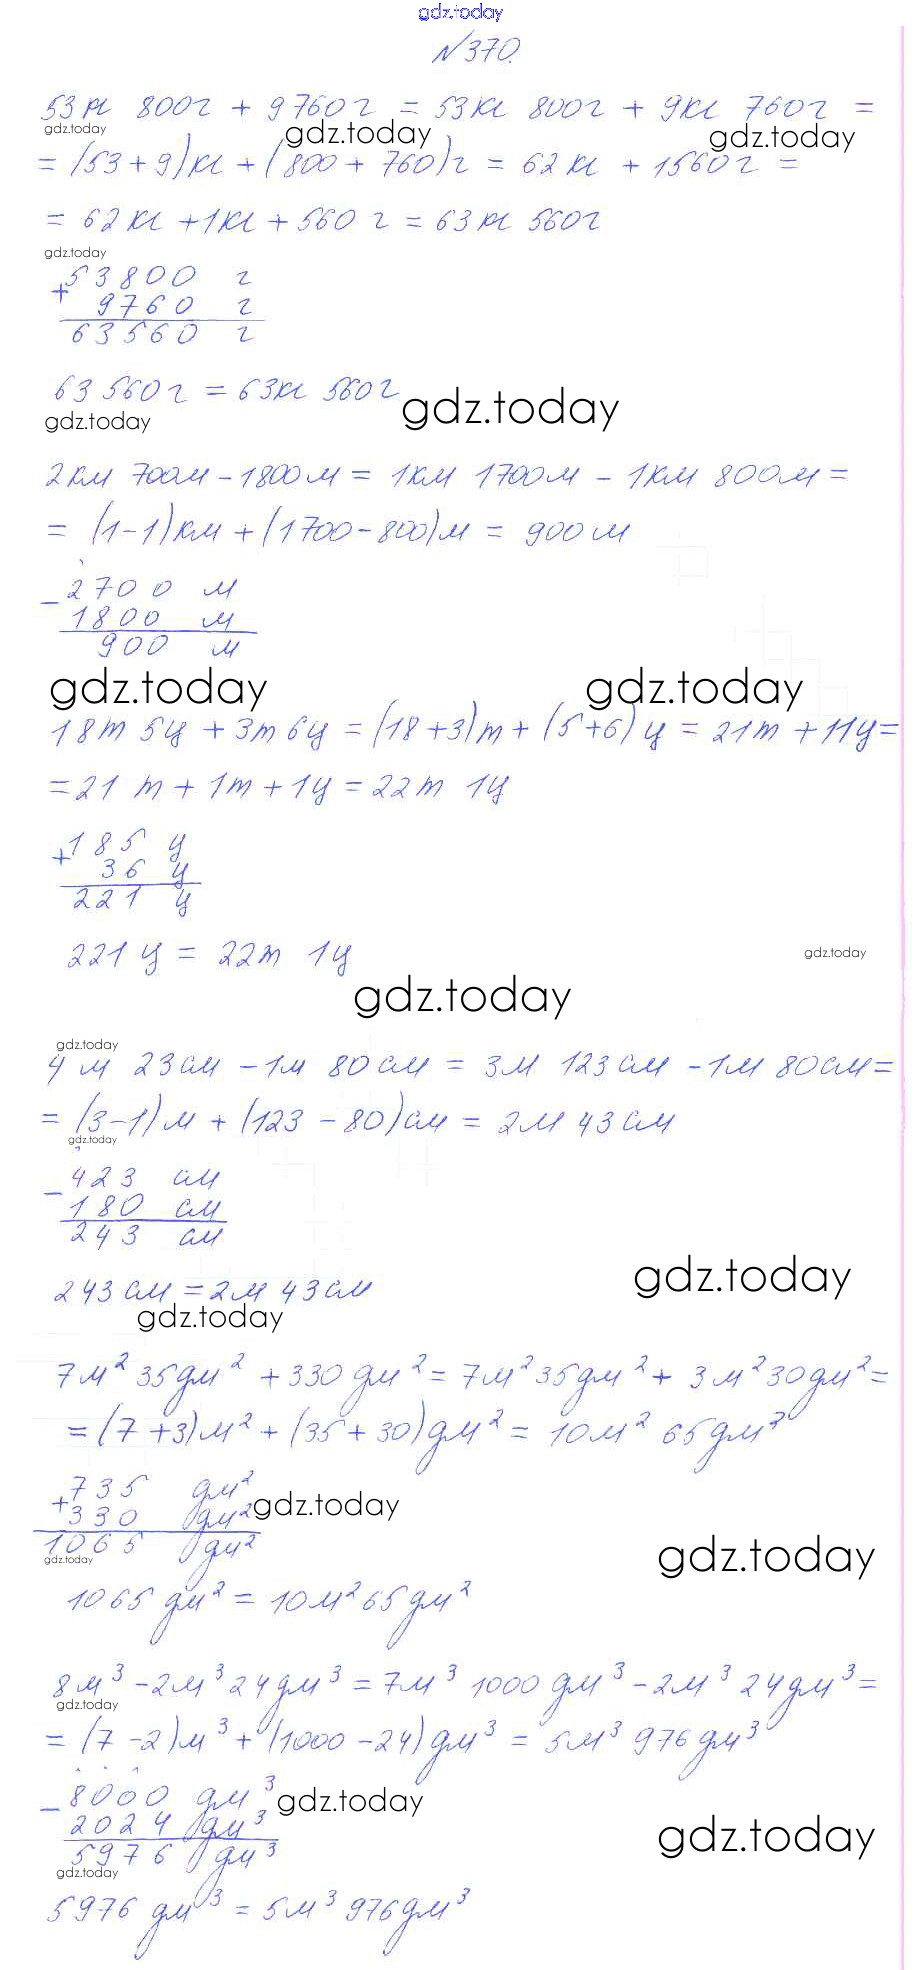 gdz.today
№370.
53 кг 800 г + 9 760 г = 53 кг 800 г + 9 кг 760 г =
gdz.today gdz.today gdz.today
= (53 + 9) кг + (800 + 760) г = 62 кг + 1560 г =
= 62 кг + 1 кг + 560 г = 63 кг 560 г
gdz.today
53800 г
+
9760 г
63560 г
63 560 г = 63 кг 560 г
gdz.today gdz.today
2 км 700 м - 1800 м = 1 км 1700 м - 1 км 800 м =
= (1-1) км + (1700 - 800) м = 900 м
- 2700 м
1800 м
900 м
gdz.today gdz.today
18 т 5 ц + 3 т 6 ц = (18 + 3) т + (5 + 6) ц = 21 т + 11 ц =
= 21 т + 1 т + 1 ц = 22 т 1 ц
+ 185 ц
36 ц
221 ц
221 ц = 22 т 1 ц
gdz.today
gdz.today
gdz.today
4 м 23 см - 1 м 80 см = 3 м 123 см - 1 м 80 см =
= (3-1) м + (123 - 80) см = 2 м 43 см
gdz.today
- 423 см
180 см
243 см
gdz.today
243 см = 2 м 43 см
gdz.today
7 м² 35 дм² + 330 дм² = 7 м² 35 дм² + 3 м² 30 дм² =
= (7 + 3) м² + (35 + 30) дм² = 10 м² 65 дм²
+ 735 дм²
gdz.today
330 дм²
1065 дм²
gdz.today gdz.today
1065 дм² = 10 м² 65 дм²
8 м³ - 2 м³ 24 дм³ = 7 м³ 1000 дм³ - 2 м³ 24 дм³ =
gdz.today
= (7 - 2) м³ + (1000 - 24) дм³ = 5 м³ 976 дм³
- 8000 дм³
gdz.today
2024 дм³
gdz.today
5976 дм³
gdz.today
5976 дм³ = 5 м³ 976 дм³